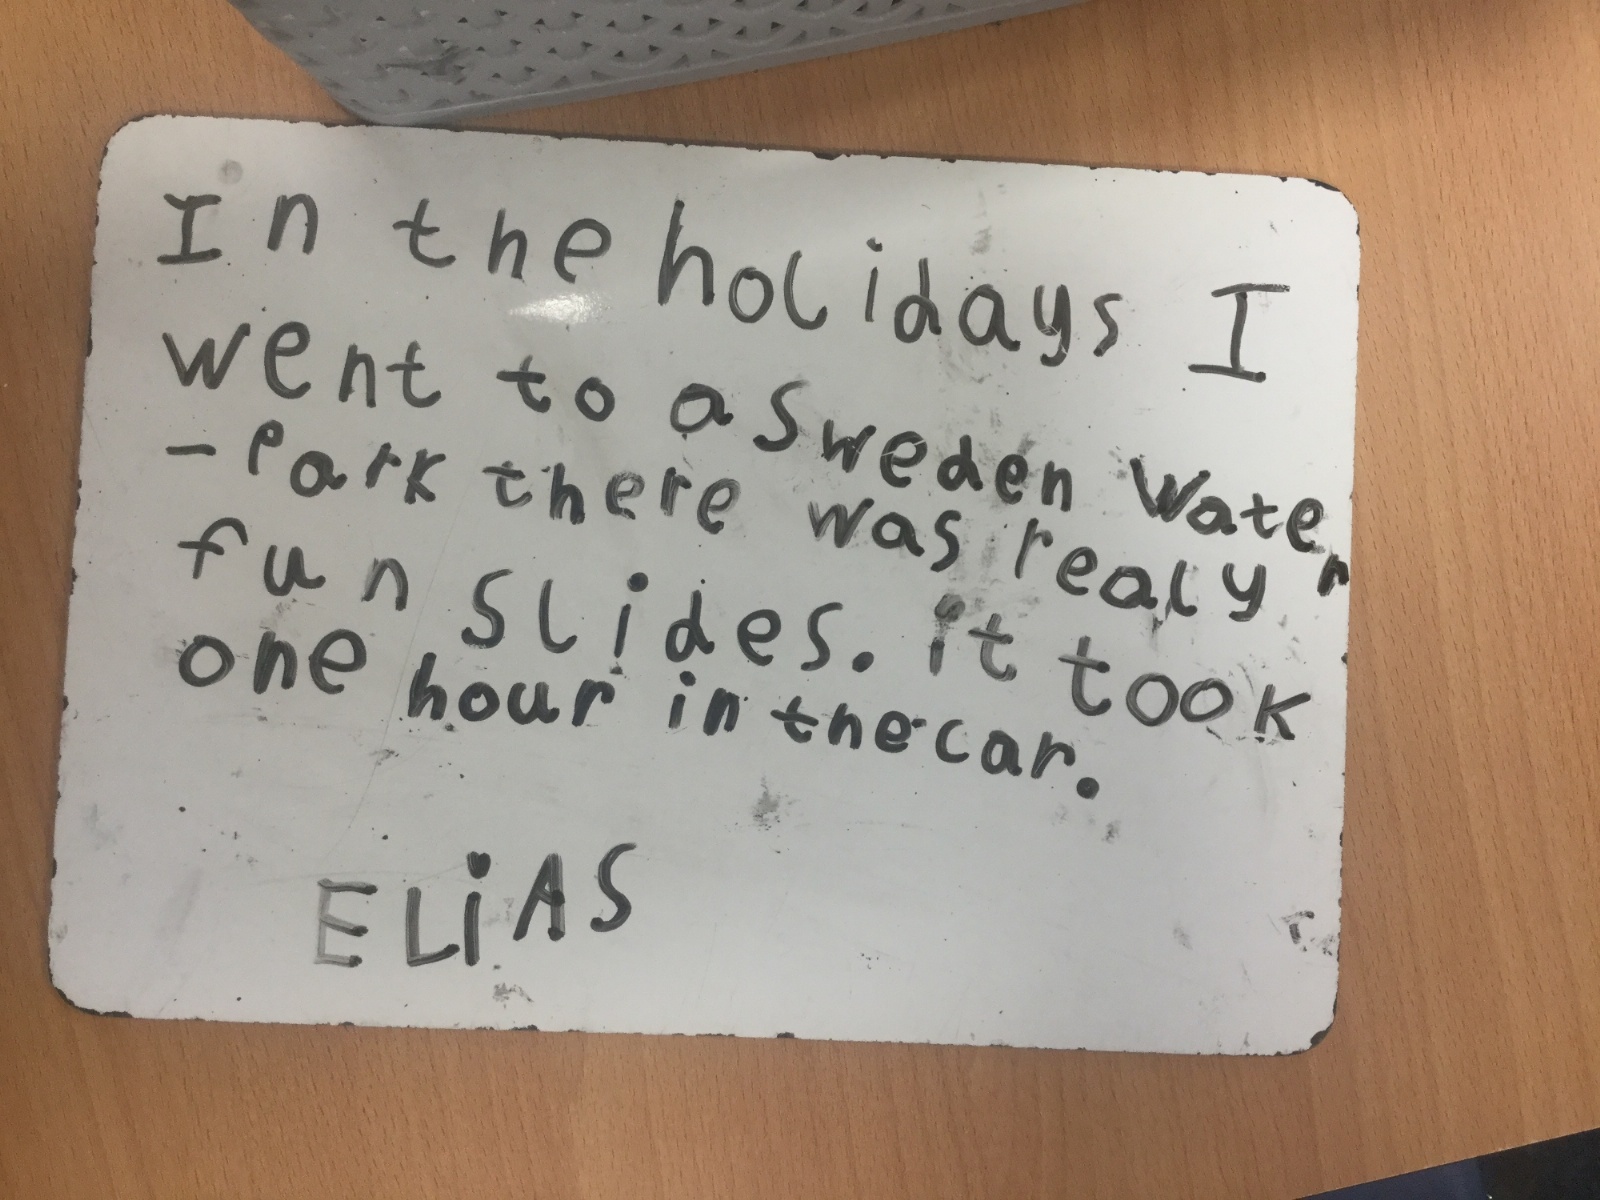 In the holidays I
went to a Sweden Water
-Park there was realy
fun slides. it took
one hour in the car.
ELiAS